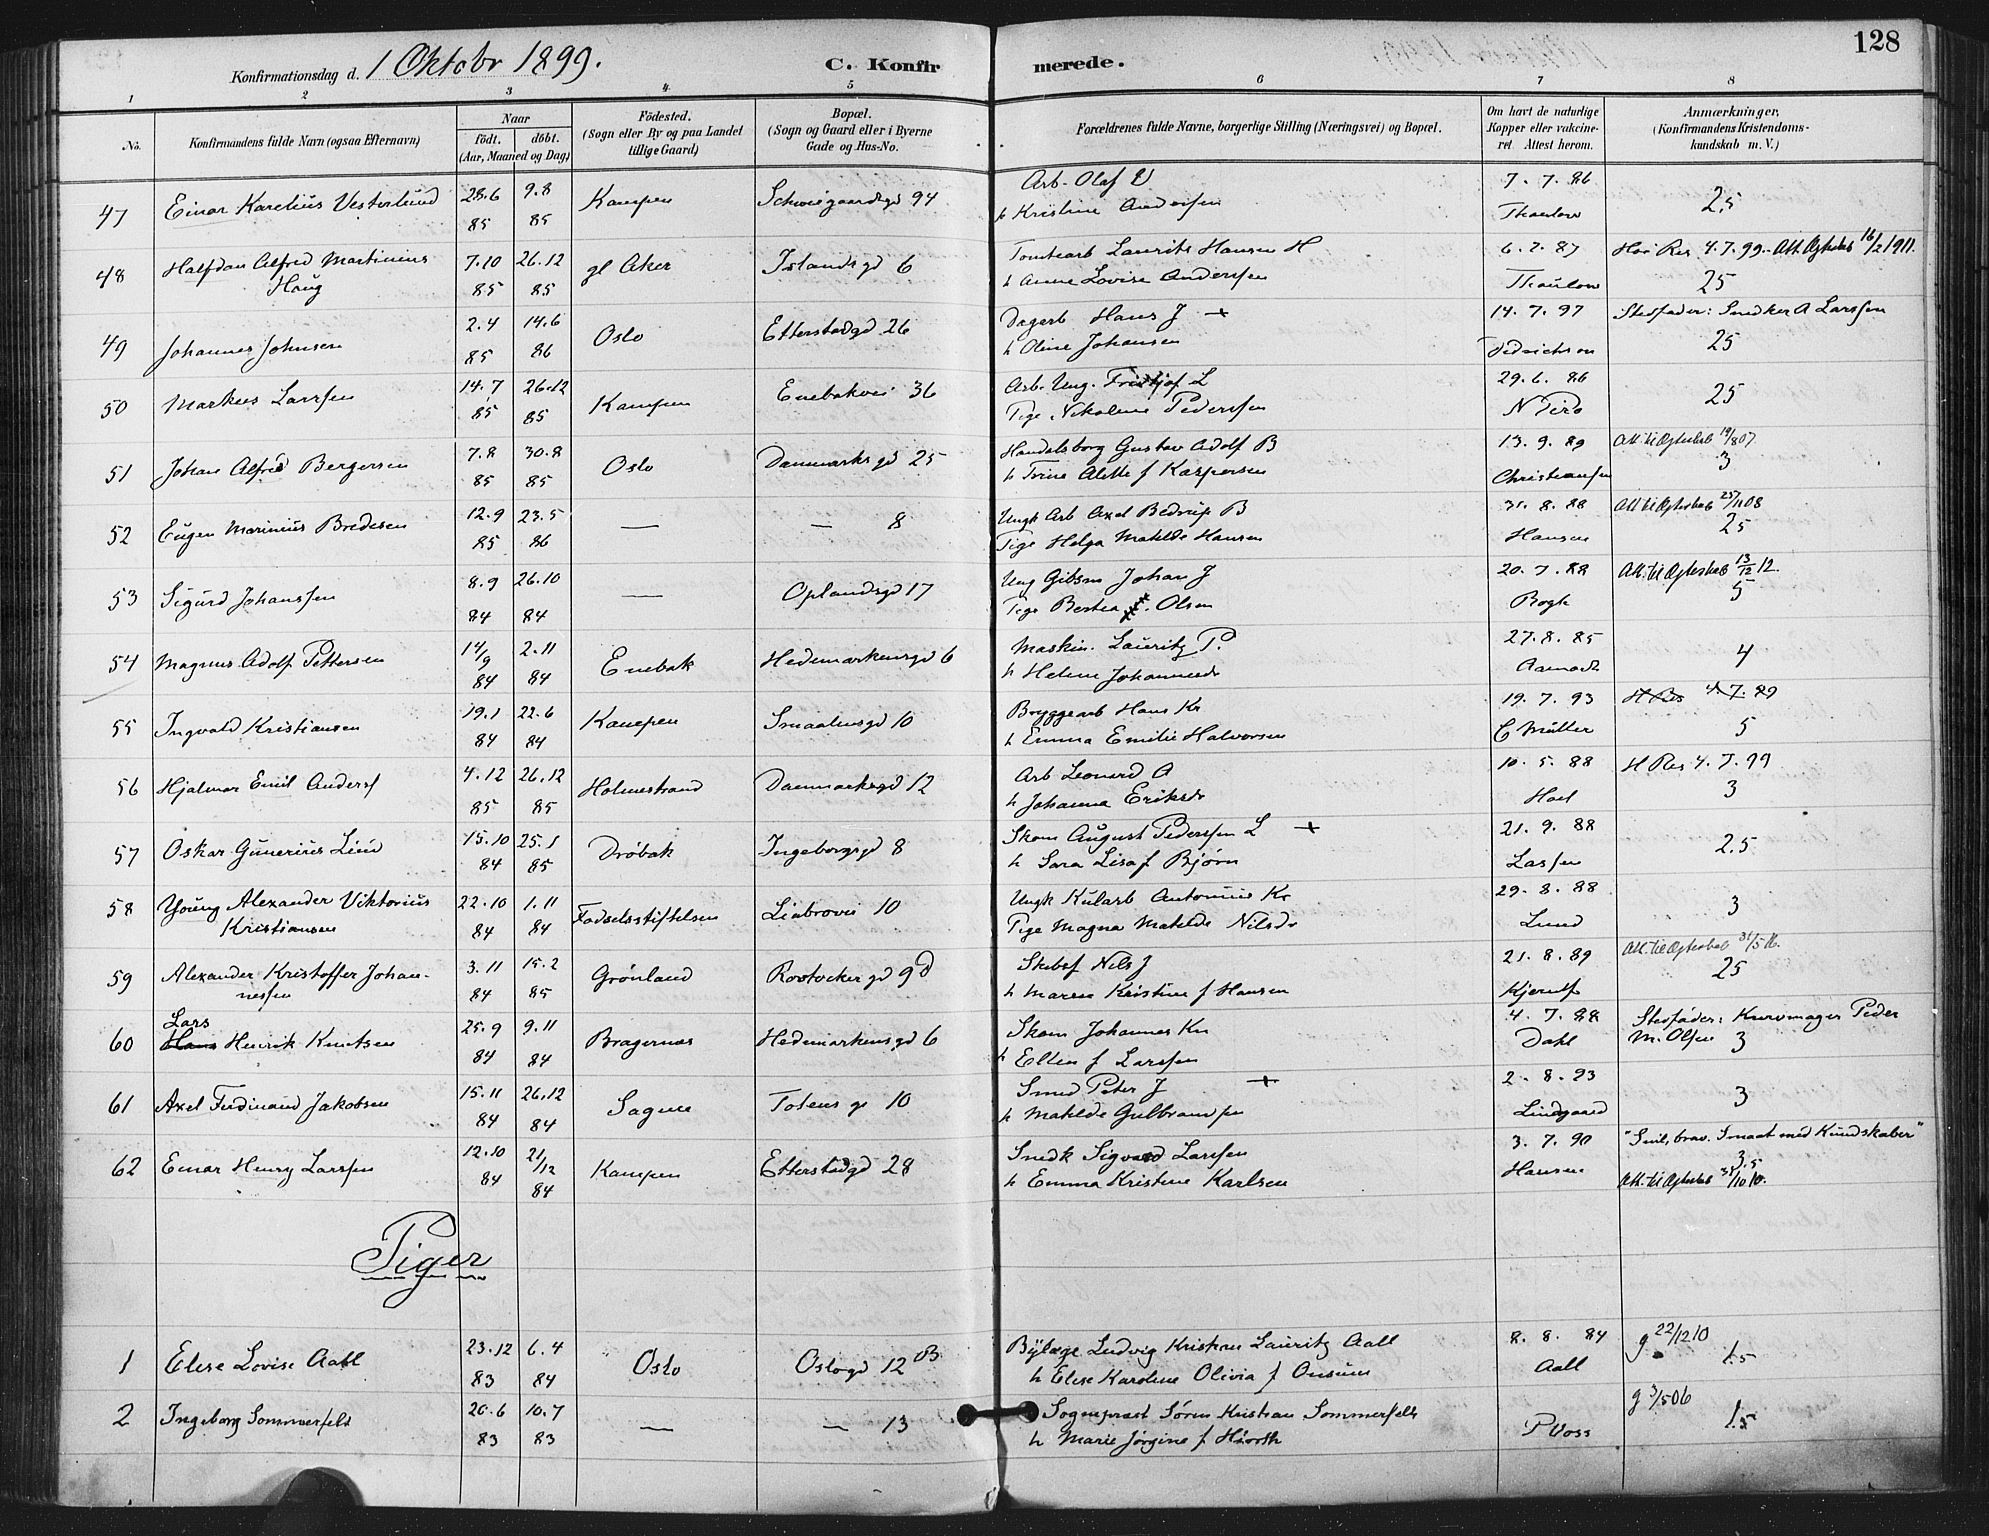 128
Konfirmationsdag d. 1 Oktobr 1899. C. Konfirmerede.
1 2 3 4. 5 6 7 8
No. Konfirmandens fulde Navn (ogsaa Efternavn) Naar født. døbt. (Aar, Maaned og Dag) Födested. (Sogn eller By og paa Landet tillige Gaard) Bopæl. (Sogn og Gaard eller i Byerne Gade og Hus-No. Forældrenes fulde Navne, borgerlige Stilling (Næringsvei) og Bopæl. Om havt de naturlige Kopper eller vakcineret. Attest herom. Anmærkninger. (Konfirmandens Kristendomskundskab m. V.)
47 Einar Karelius Vesterlund 28.6 85 9.8 85 Kampen Schweigaardsgd 94 Arb. Olaf V 7. 7. 86 25
h Kristine Andersen Thaulow
48 Halfdan Alfred Martinius Haug 7.10 85 26.12 85 gl Aker Islandsgd 6 Tomtearb Laurits Hansen H 6. 7. 87 4.7.99. Att. Ægteskab 16/2 1911.
h Anne Lovise Andersen Thaulow 25
49 Johannes Johnsen 2.4 85 14.6 86 Oslo Etterstadgd 26 Dagarb Hans J + 14. 7. 97 Stedfader: Snedker A Larssen
h Oline Johansen 25
50 Markus Larssen 14.7 85 26.12 85 Kampen Enebakvei 36 Arb. Ung. Fritjof L 29. 6. 86 25
Pige Nikoline Pederssen
51 Johan Alfred Bergersen 7.8 85 30.8 85 Oslo Danmarksgd 25 Handelsborg Gustav Adolf B 13. 9. 89 Att. til Ægteskab 19/8 07
h Trine Alette f Kaspersen Christiansen 3
52 Eugen Marinius Bredesen 12.9 85 23.5 86 — — 8 Ungk Arb Axel Bedrup B 31. 8. 88 Att til Ægteskab 25/11 08
Pige Helga Matilde Hansen Hansen 25
53 Sigurd Johanssen 8.9 84 26.10 84 — Oplandsgd 17 Ung Gibsm Johan J 20. 7. 88 Att. til Ægteskab 13/12 12.
Pige Bertea Olsen Bogh 5
54 Magnus Adolf Pettersen 14/9 84 2.11 84 Enebak Hedemarkensgd 6 Maskin. Lauritz P. 27. 8. 85 4
h Helene Johannesd
55 Ingvald Kristiansen 19.1 84 22.6 84 Kampen Smaalensgd 10 Bryggearb Hans Kr 19. 7. 93 H Res 4.7.99
h Emma Emilie Halvorsen C Müller 5
56 Hjalmar Emil Anders 4.12 85 26.12 85 Holmestrand Danmarksgd 12 Arb Leonard A 10. 5. 88 H Res 4.7.99
h Johanna Eriksdr Hoel 3
57 Oskar Gunerius Lund 15.10 84 25.1 85 Drøbak Ingeborgsgd 8 Skom August Pederssen L + 21. 9. 88 2.5
h Sara Lisa f Bjørn Lassen
58 Young Alexander Viktorius Kristiansen 22.10 84 1.11 84 Fødselsstiftelsen Liabrovei 10 Ungk Kularb Antonius Kr 29. 8. 88 3
Pige Magna Matilde Nilsdr Lund
59 Alexander Kristoffer Johannessen 3.11 84 15.2 85 Grønland Rostockergd 9d Skibsf Nils J 21. 8. 89 Att. til Ægteskab 31/5 16.
h Maren Kristine f Hansen Kjerulf 25
60 Lars Hans Henrik Knutsen 25.9 84 9.11 84 Bragernes Hedemarkensgd 6 Skom Johannes Kn 4. 7. 88 Stedfader: Kurvmager Peder M. Olsen
h Ellen f Larssen Dahl 3
61 Axel Ferdinand Jakobsen 15.11 84 26.12 84 Sagene Totens g 10 Smed Peter J + 2. 8. 93 3
h Matilde Gulbrandsen Lindgaard
62 Einar Henry Larssen 12.10 84 21/12 84 Kampen Etterstadgd 28 Snedk Sigvard Larssen 3. 7. 90 "Snil, brav. Smaat med Kundskaber" 3.5
h Emma Kristine Karlsen Hansen Att. til Ægteskab 31/10 10.
Piger
1 Elise Lovise Aall 23.12 83 6.4 84 Oslo Oslogd 12 B Bylæge Ludvig Kristian Lauritz Aall 8. 8. 84 g 22/12 10
h Elise Karoline Olivia f Onsum Aall 1.5
2 Ingeborg Sommerfelt 20.6 83 10.7 83 — — 13 Sognepræst Søren Kristian Sommerfelt g 3/5 06
h Marie Jørgine f Hiorth P Voss 1.5